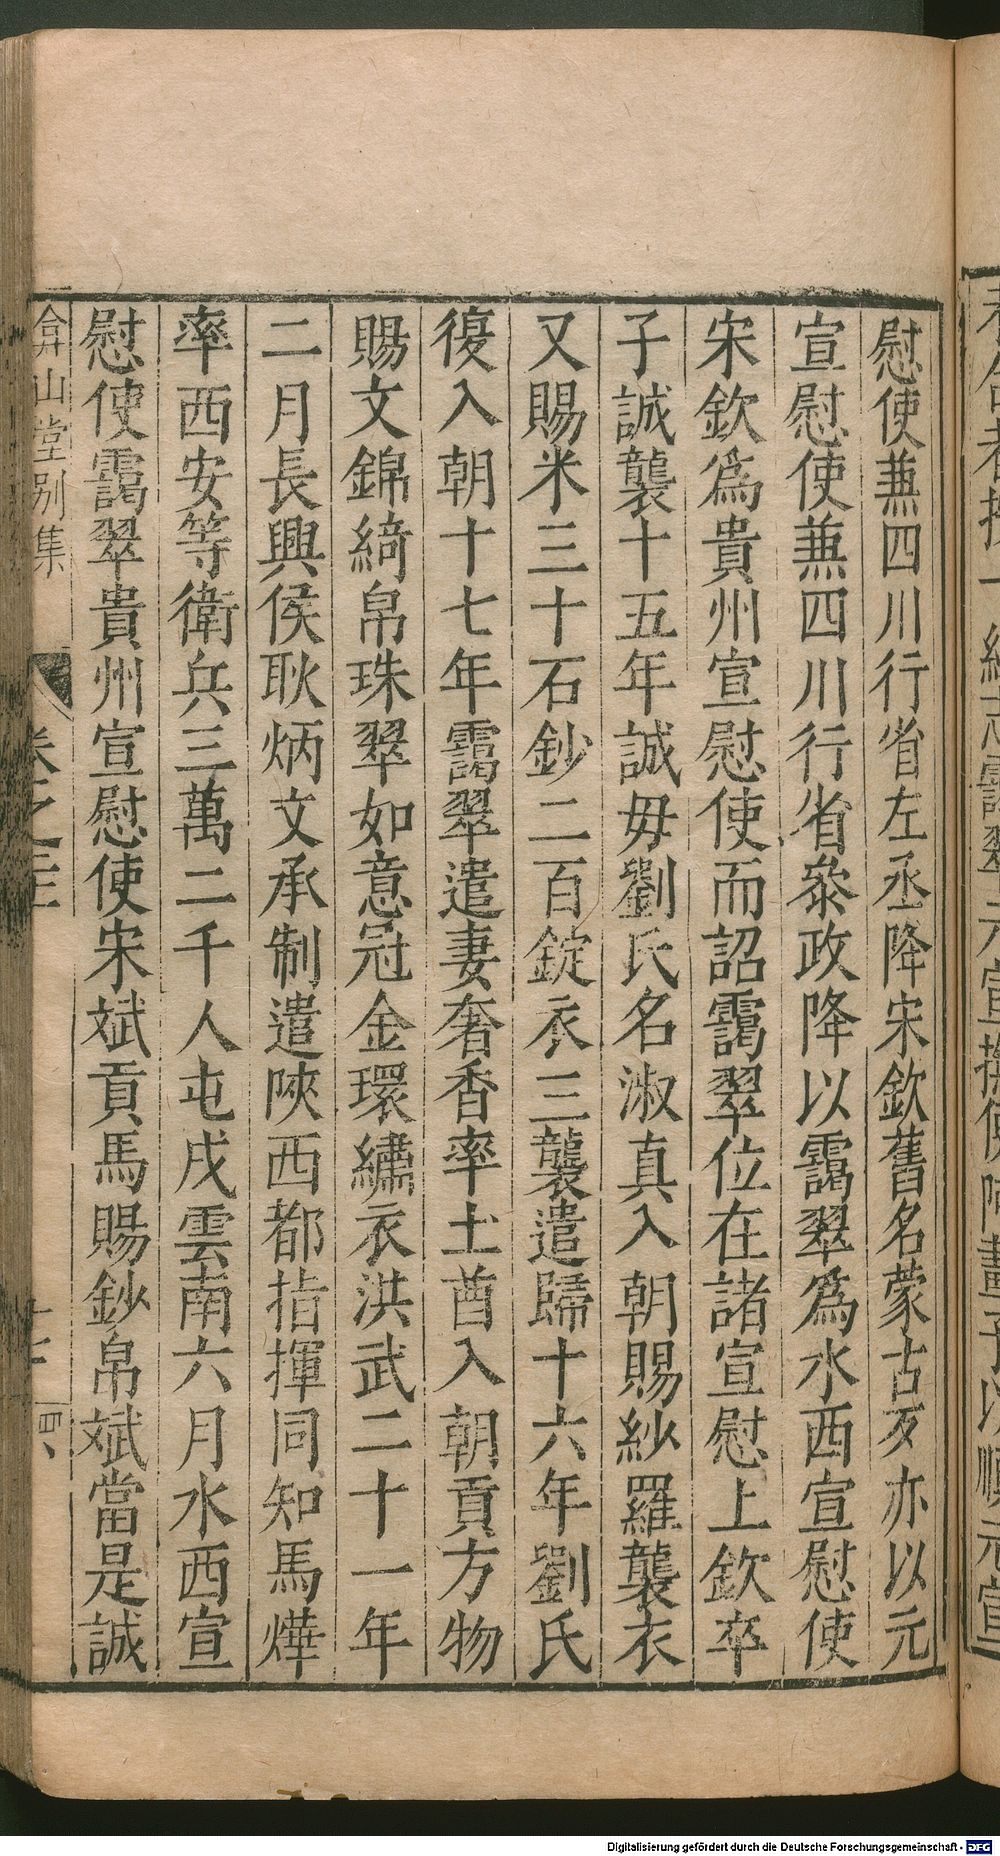 慰使兼四川行省左丞降宋欽舊名蒙古歹亦以元
宣慰使兼四川行省叅政降以靄翠爲水西宣慰使
宋欽爲貴州宣慰使而詔靄翠位在諸宣慰上欽卒
子誠襲十五年誠毋劉氏名淑真入朝賜紗羅襲衣
又賜米三十石鈔二百錠衣三襲遣歸十六年劉氏
復入朝十七年靄翠遣妻奢香率土酋入朝貢方物
賜文錦綺帛珠翠如意冠金環繡衣洪武二十一年
二月長興侯耿炳文承制遣陝西都指揮同知馬燁
率西安等衛兵三萬二千人屯戍雲南六月水西宣
慰使靄翠貴州宣慰使宋斌貢馬賜鈔帛斌當是誠
弇山堂別集
卷之三
Digitalisierung gefördert durch die Deutsche Forschungsgemeinschaft - DFG